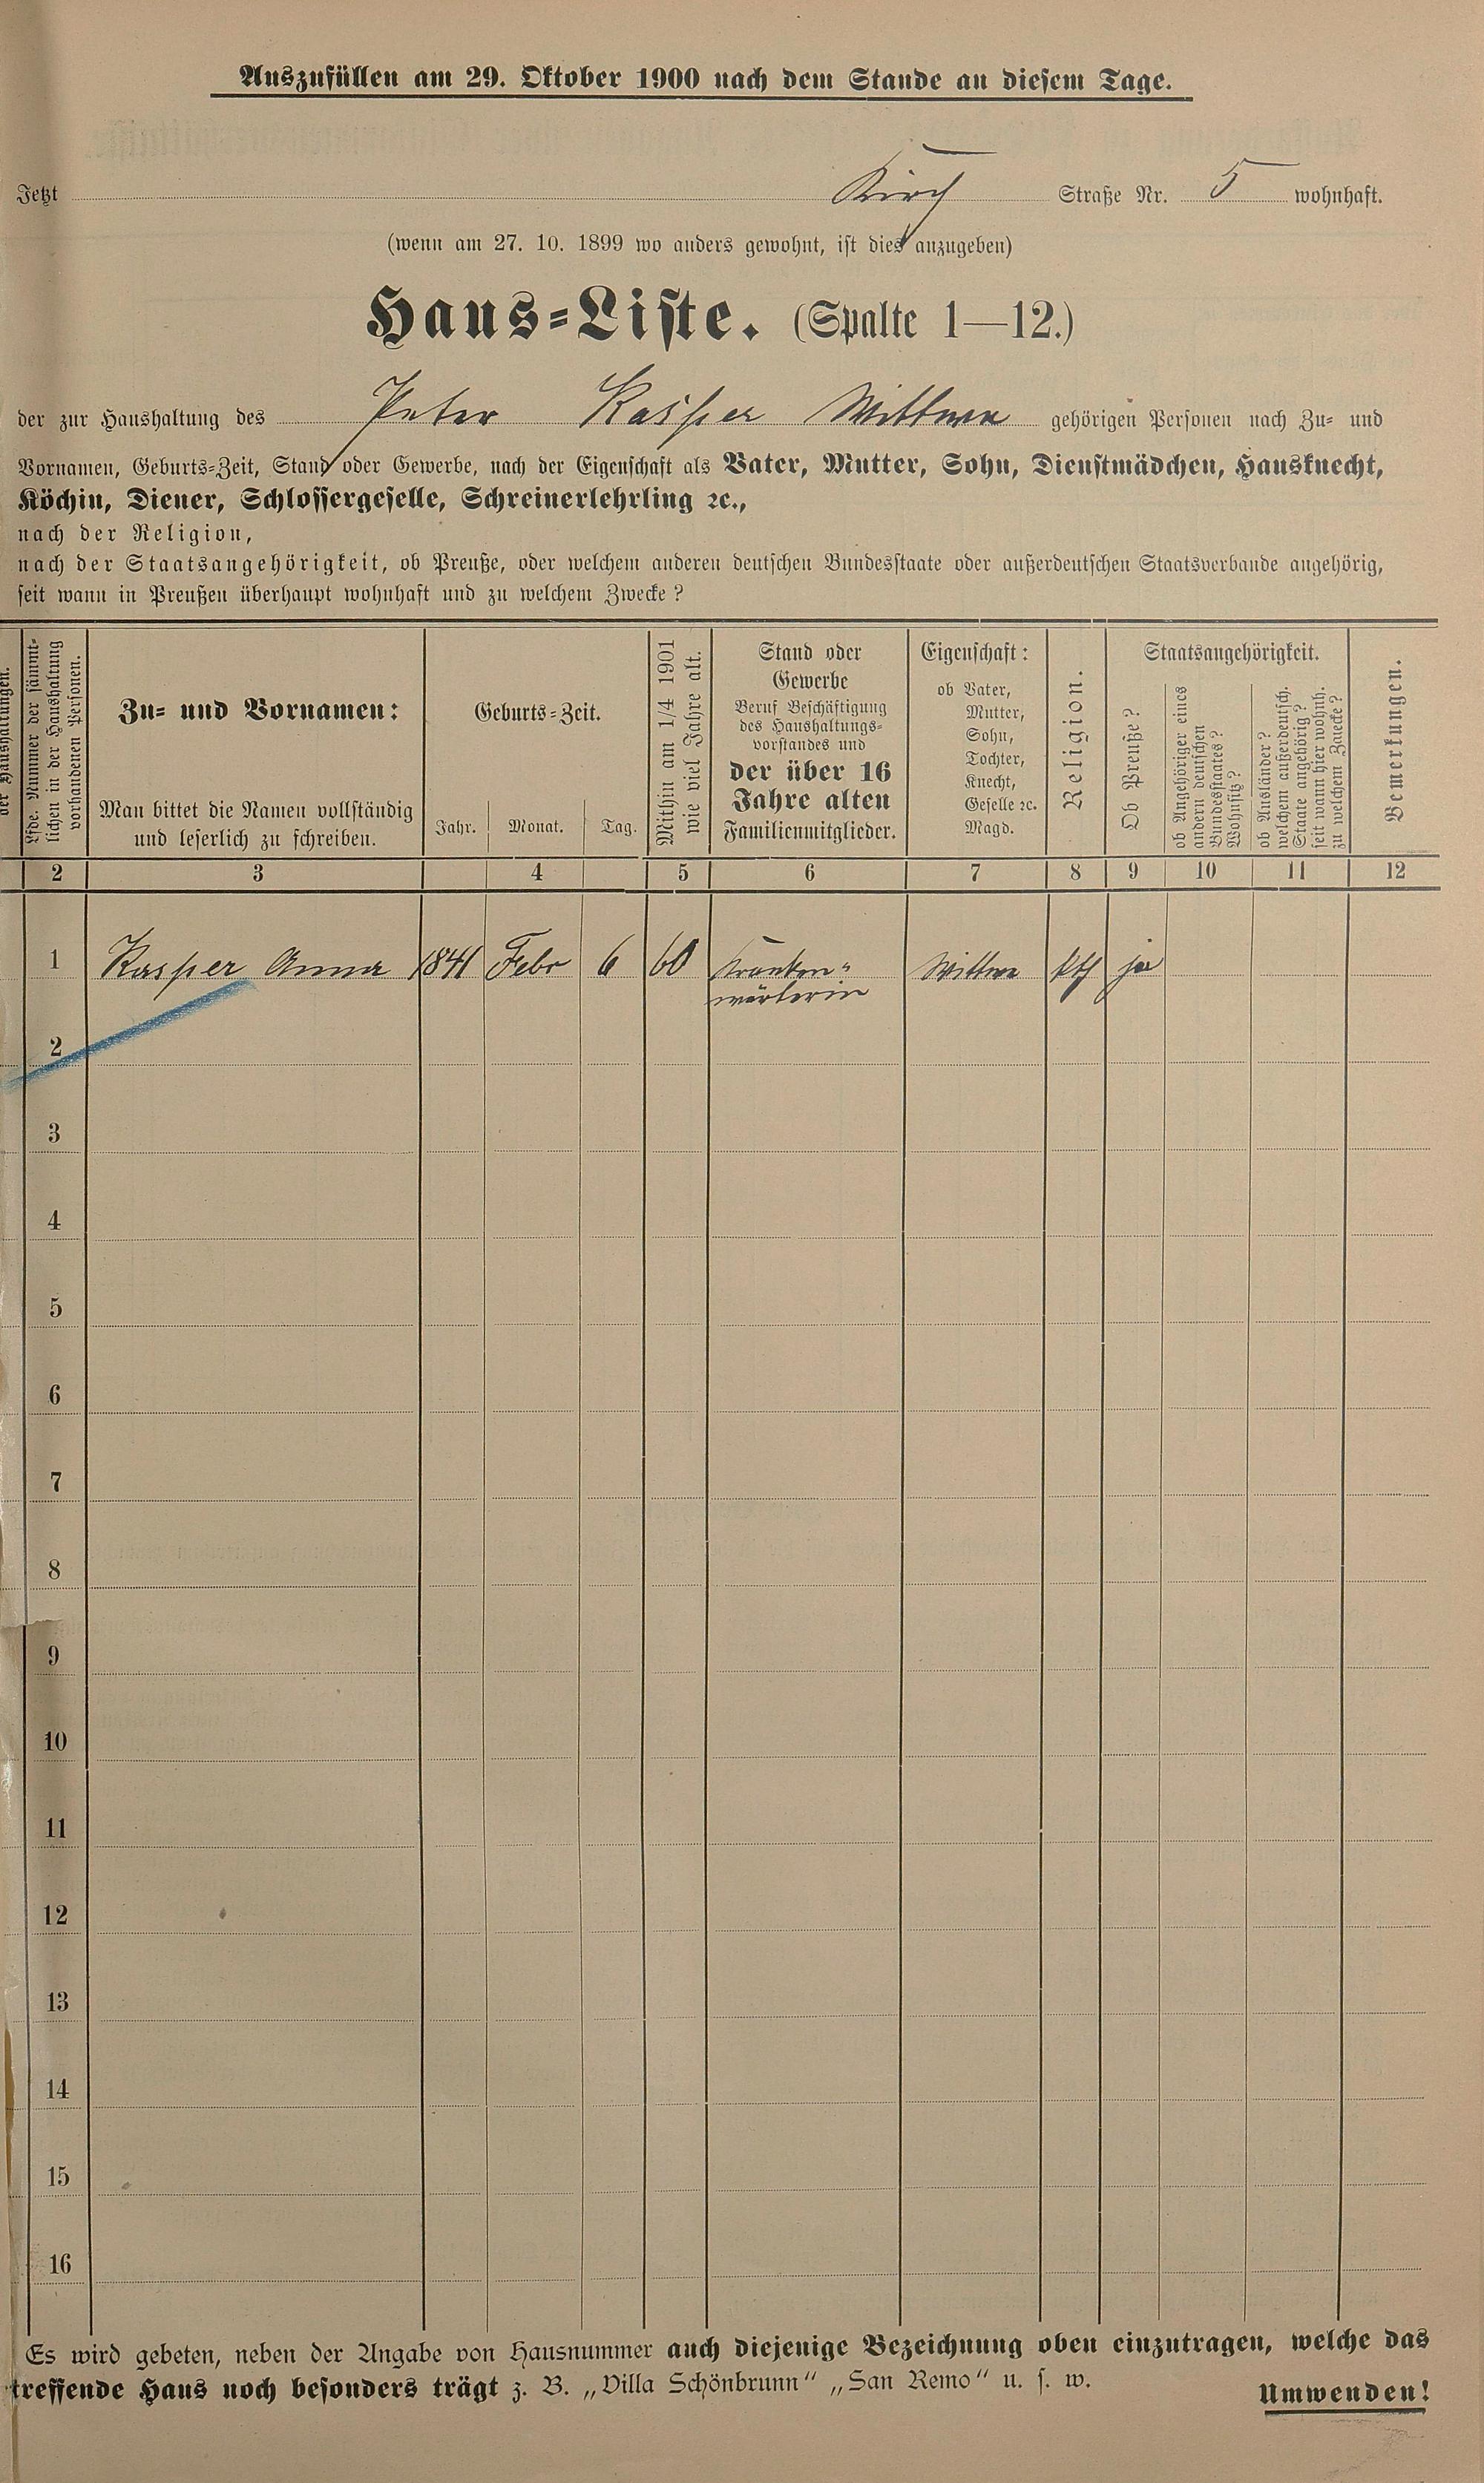 Auszufüllen am 29. Oktober 1900 nach dem Stande an diesem Tage.
Jetzt Kirch Straße Nr. 5 wohnhaft.
(wenn am 27. 10. 1899 wo anders gewohnt, ist dies anzugeben)
Haus-Liste. (Spalte 1—12.)
der zur Haushaltung des Peter Kasper Wittwe gehörigen Personen nach Zu- und
Vornamen, Geburts-Zeit, Stand oder Gewerbe, nach der Eigenschaft als Vater, Mutter, Sohn, Dienstmädchen, Hausknecht,
Köchin, Diener, Schlossergeselle, Schreinerlehrling ꝛc.,
nach der Religion,
nach der Staatsangehörigkeit, ob Preuße, oder welchem anderen deutschen Bundesstaate oder außerdeutschen Staatsverbande angehörig,
seit wann in Preußen überhaupt wohnhaft und zu welchem Zwecke?
der Haushaltungen.
Lfde. Nummer der sämmt-
lichen in der Haushaltung
vorhandenen Personen.
Zu- und Vornamen:
Man bittet die Namen vollständig
und leserlich zu schreiben.
Geburts-Zeit.
Jahr. Monat. Tag.
Mithin am 1/4 1901
wie viel Jahre alt.
Stand oder
Gewerbe
Beruf Beschäftigung
des Haushaltungs-
vorstandes und
der über 16
Jahre alten
Familienmitglieder.
Eigenschaft:
ob Vater,
Mutter,
Sohn,
Tochter,
Knecht,
Geselle ꝛc.
Magd.
Religion.
Staatsangehörigkeit.
Ob Preuße?
ob Angehöriger eines
andern deutschen
Bundesstaates?
Wohnsitz?
ob Ausländer?
welchem außerdeutsch.
Staate angehörig?
seit wann hier wohnh.
zu welchem Zwecke?
Bemerkungen.
2 3 4 5 6 7 8 9 10 11 12
1 Kasper Anna 1841 Febr 6 60 Kranken- Wittwe kth ja
wärterin
2
3
4
5
6
7
8
9
10
11
12
13
14
15
16
Es wird gebeten, neben der Angabe von Hausnummer auch diejenige Bezeichnung oben einzutragen, welche das
treffende Haus noch besonders trägt z. B. „Villa Schönbrunn" „San Remo" u. s. w.
Umwenden!